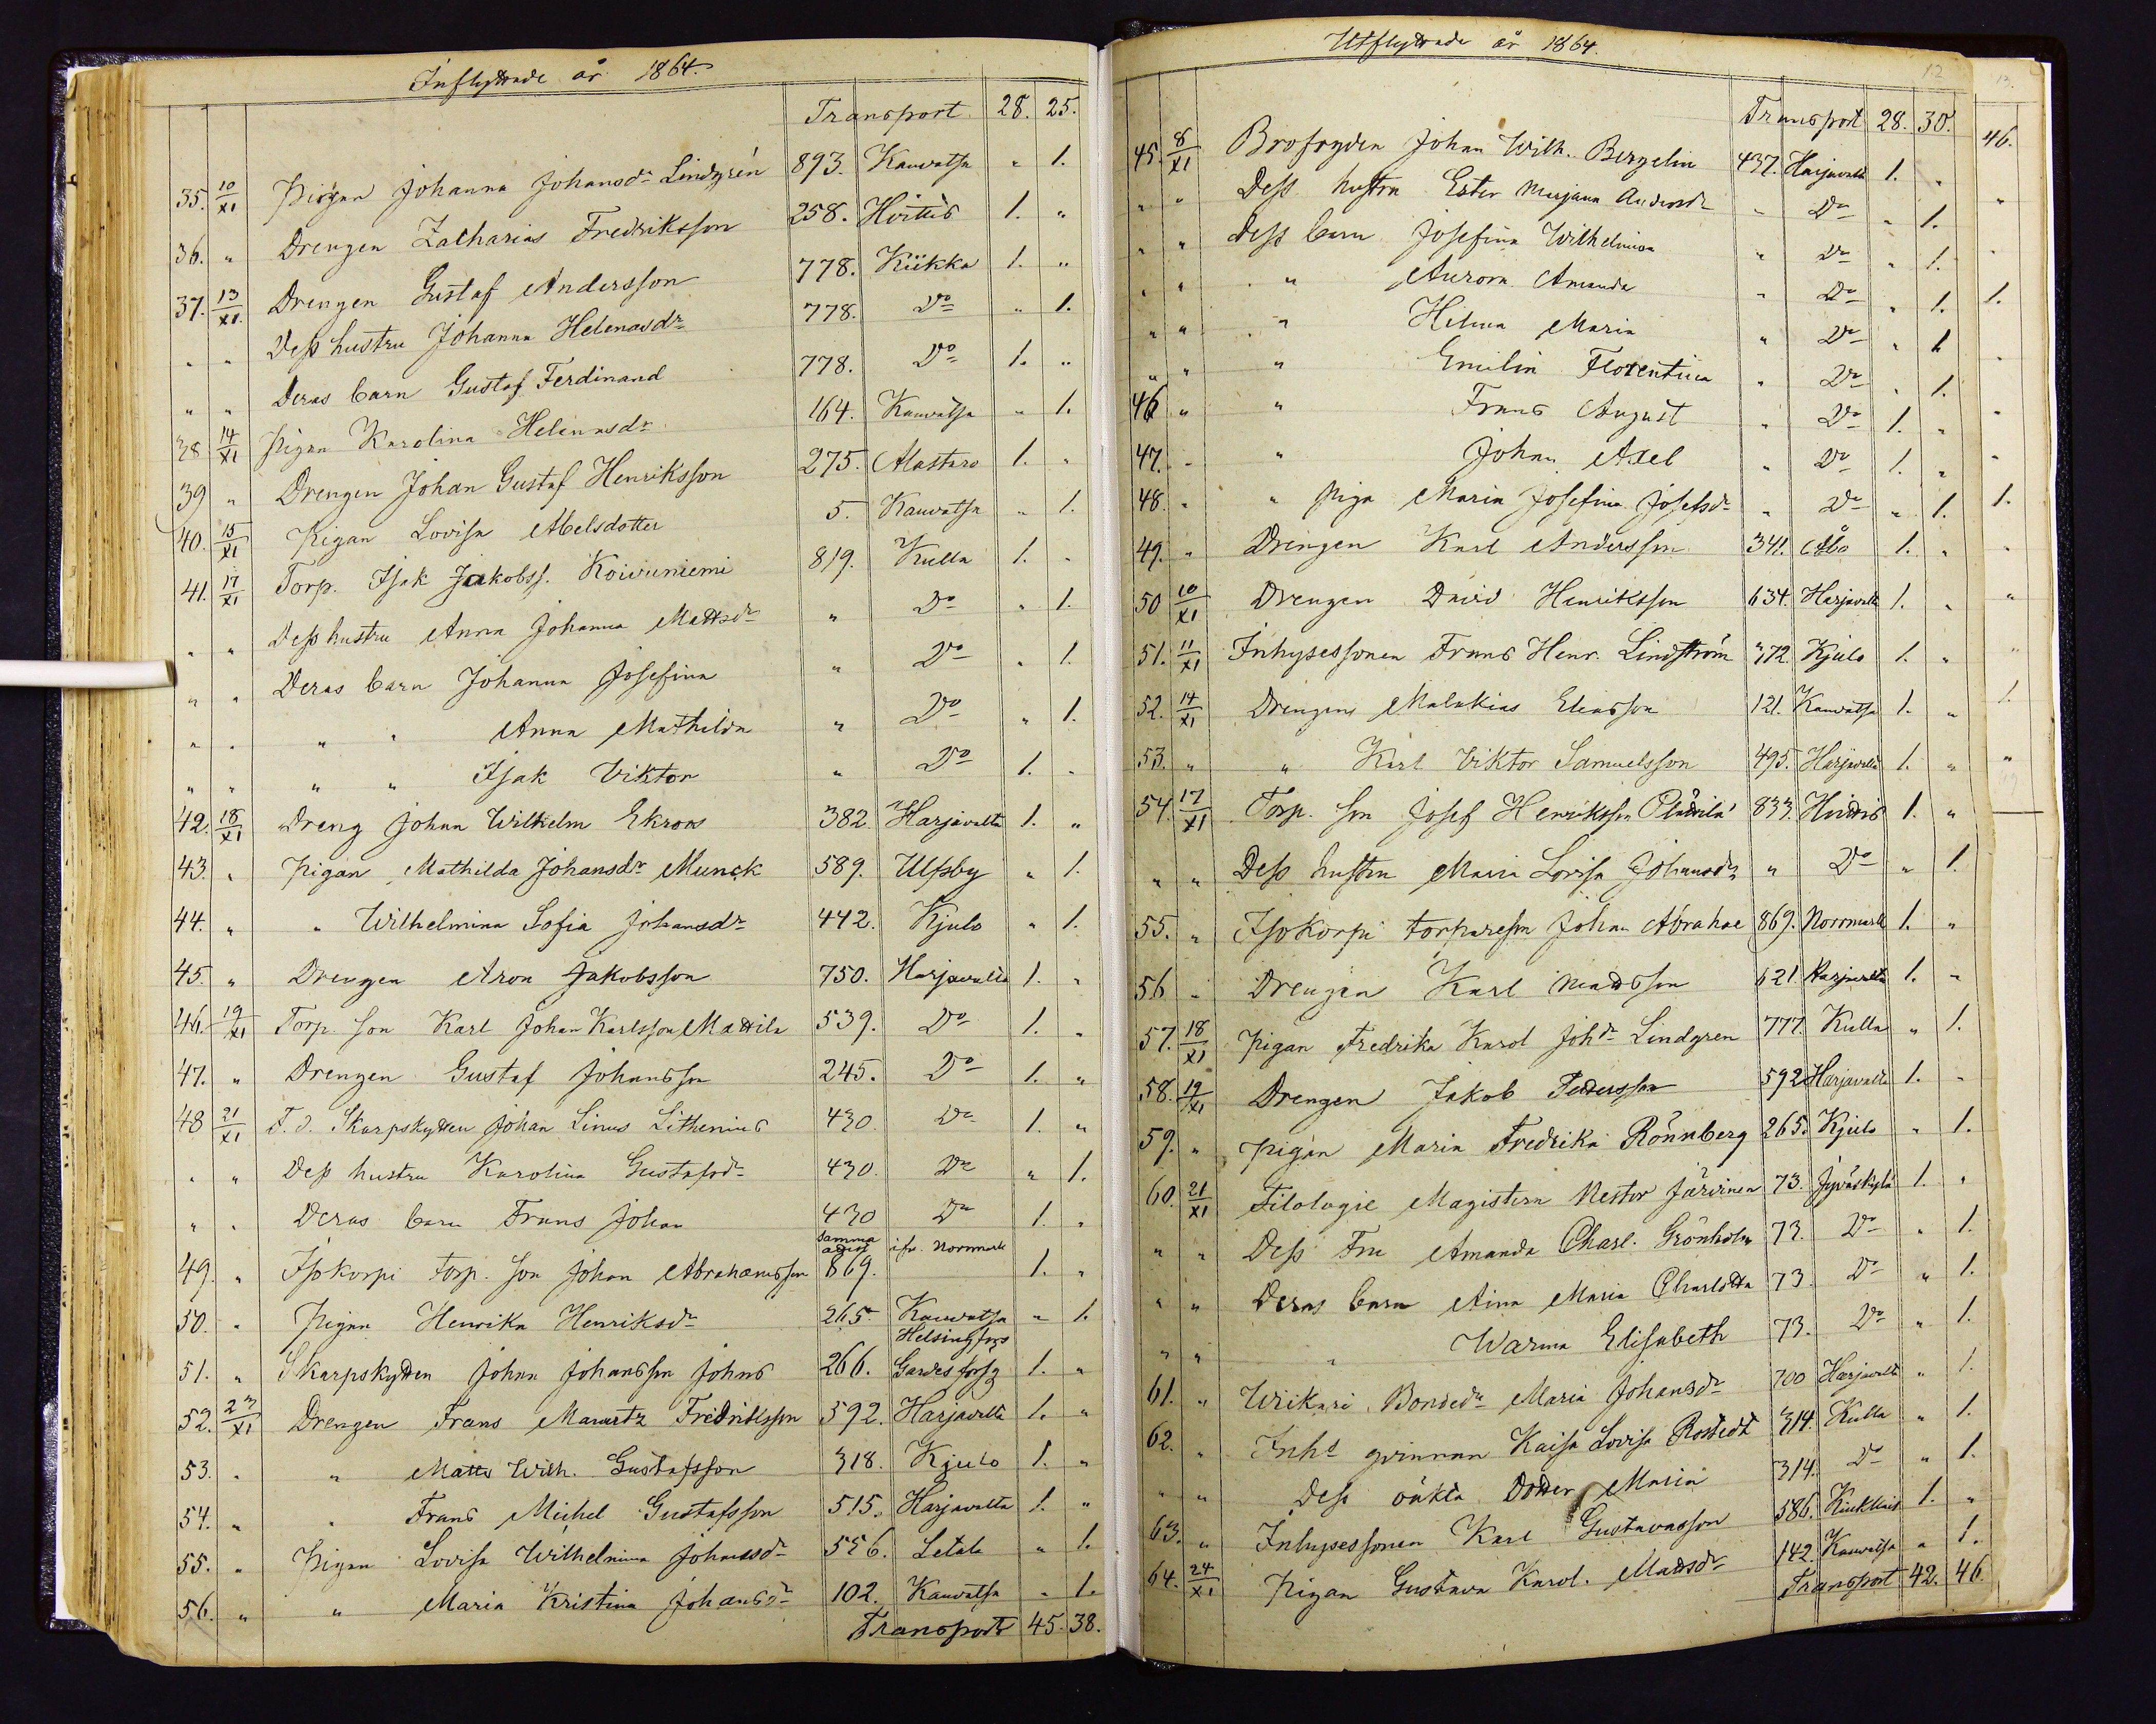 Inflyttade år 1864.
Transport 28. 25.
35. 10/XI Pigan Johanna Johansdr Lindgrén 893. Kauvatsa " 1.
36. " Drengen Zacharias Fredriksson 258. Hvittis 1. "
37. 13/XI. Drengen Gustaf Andersson 778. Kiikka 1. "
" " Dess hustru Johanna Helenasdr 778. Do " 1.
" " Deras barn Gustaf Ferdinand 778. Do 1. "
38 14/XI Pigan Karolina Helenasdr 164. Kauvatsa " 1.
39 " Drengen Johan Gustaf Henriksson 275. Alastaro 1. "
40. 15/XI Pigan Lovisa Abelsdotter 5. Kauvatsa " 1.
41. 17/XI Torp. Isak Jakobss. Koivuniemi 819. Kulla 1. "
" " Dess hustru Anna Johanna Mattsdr " Do " 1.
" " Deras barn Johanna Josefina " Do " 1.
" " " " Anna Mathilda " Do " 1.
" " " " Isak Viktor " Do 1. "
42. 18/XI Dreng Johan Wilhelm Ekroos 382. Harjavalta 1. "
43. " Pigan Mathilda Johansdr Munck 589. Ulfsby " 1.
44. " " Wilhelmina Sofia Johansdr 442. Kjulo " 1.
45. " Drengen Aron Jakobsson 750. Harjavalta 1. "
46. 19/XI Torp. son Karl Johan Karlsson Mattila 539. Do 1. "
47. " Drengen Gustaf Johansson 245. Do 1. "
48 21/XI F.d. Skarpskytten Johan Linus Lithenius 430. Do 1. "
" " Dess hustru Karolina Gustafsdr 430. Do " 1.
" " Deras barn Frans Johan 430 Do 1. "
49. " Isokorpi torp. son Johan Abrahamsson samma 869. ifr. Norrmark 1. "
50. " Pigan Henrika Henriksdr 265. Kauvatsa " 1.
51. " Skarpskytten Johan Johansson Johns 266. Helsingfors 1. "
52. 23/XI Drengen Frans Mauritz Fredriksson 592. Harjavalta 1. "
53. " " Matts Wilh. Gustafsson 318. Kjulo 1. "
54. " " Frans Michel Gustafsson 515. Harjavalta 1. "
55. " Pigan Lovisa Wilhelmina Johansdr 556. Letala " 1.
56. " " Maria Kristina Johansdr 102. Kauvatsa " 1.
Transport 45. 38.
Utflyttade år 1864.
12
Transport 28. 30.
45. 8/XI Brofogden Johan Wilh. Bergelin 437. Harjavalta 1. "
" " Dess hustru Ester Marjana Andersdr " Do " 1.
" " Dess barn Josefina Wilhelmina " Do " 1.
" " " Aurora Amanda " Do " 1.
" " " Hilma Maria " Do " 1
" " " Emilia Florentina " Do " 1.
46 " " Frans August " Do 1. "
47. " " Johan Axel " Do 1. "
48. " " Piga Maria Josefina Josefsdr " Do " 1.
49. " Drengen Karl Andersson 341. Åbo 1. "
50 10/XI Drengen David Henriksson 634. Harjavalta 1. "
51. 11/XI Inhysessonen Frans Henr. Lindström 372. Kjulo 1. "
52. 14/XI Drengen Malakias Eliasson 121. Kauvatsa 1. "
53. " " Karl Viktor Samuelsson 495. Harjavalta 1. "
54. 17/XI Torp. son Josef Henriksson 833. Hvittis 1. "
" " Dess hustru Maria Lovisa Johansdr " Do " 1.
55. " Isokorpi torparesn Johan Abrahae 869. Norrmark 1. "
56 " Drengen Karl Mattsson 621. Harjavalta 1. "
57. 18/XI Pigan Fredrika Karol Johdr Lindgren 777. Kulla " 1.
58. 19/XI Drengen Jakob Pettersson 592 Harjavalta 1. "
59. " Pigan Maria Fredrika Rönnberg 265. Kjulo " 1.
60. 21/XI Filologie Magistern Nestor Järvinen 73. Jyväskylä 1. "
" " Dess Fru Amanda Charl. Grönholm 73. Do " 1.
" " Deras barn Aina Maria Charlotta 73. Do " 1.
" " " Warma Elisabeth 73. Do " 1.
61. " Wirkari Bonded. Maria Johansdr 700 Harjavalta " 1.
62. " Inhs qvinnan Kaisa Lovisa Rostedt 314. Kulla " 1.
" " Dess oäkta Dotter Maria 314. Do " 1.
63. " Inhysessonen Karl Gustavasson 586. 1. "
64. 24/XI Pigan Gustava Karol. Mattsdr 142. Kauvatsa " 1.
Transport 42. 46.
13.
46.
1.
1.
1.